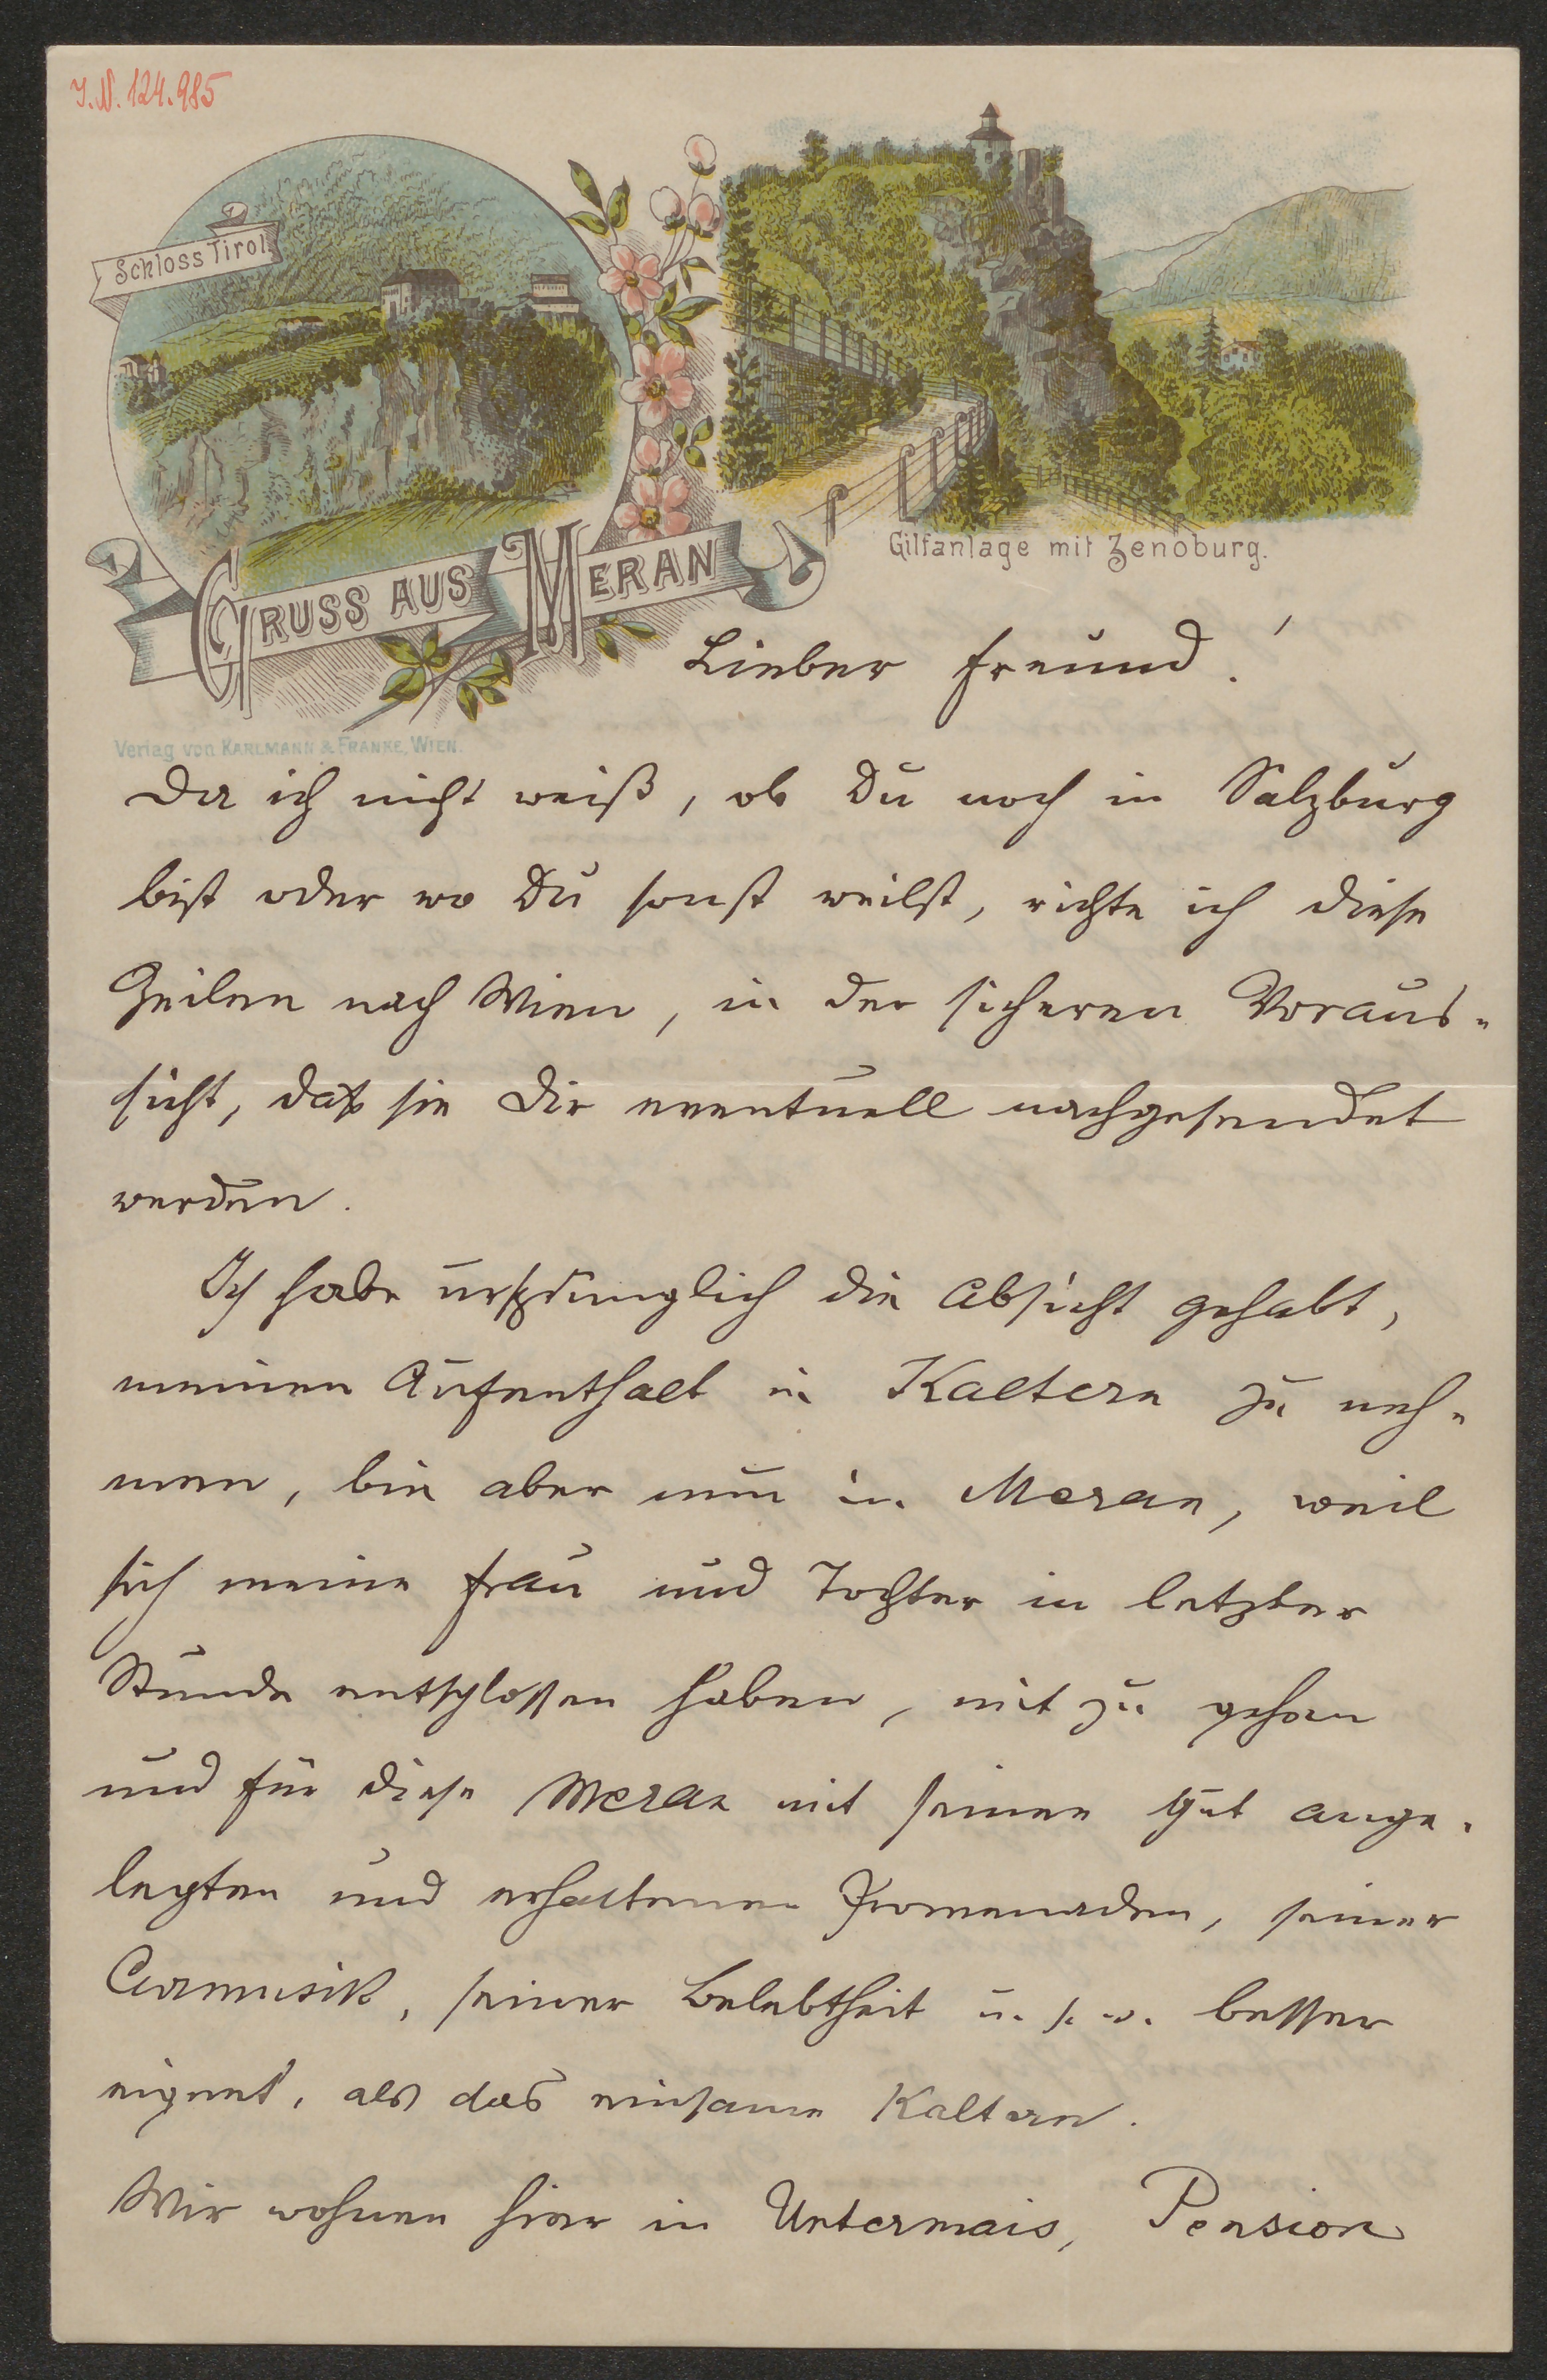 I.N. 124.985
Schloss Tirol
GRUSS AUS MERAN
Gilfanlage mit Zenoburg.
Verlag von KARLMANN & FRANKE, WIEN.
Lieber Freund!
Da ich nicht weiß, ob Du noch in Salzburg
bist oder wo Du sonst weilst, richte ich diese
Zeilen nach Wien, in der sicheren Voraus-
sicht, daß sie Dir eventuell nachgesendet
werden.
Ich habe ursprünglich die Absicht gehabt,
meinen Aufenthalt in Kaltern zu neh-
men, bin aber nun in Meran, weil
sich meine Frau und Tochter in letzter
Stunde entschlossen haben, mit zu gehen
und für diese Meran mit seinen gut ange-
legten und erhaltenen Promenaden, seiner
Curmusik, seiner Belebtheit u. s. w. besser
eignet, als das einsame Kaltern.
Wir wohnen hier in Untermais, Pension